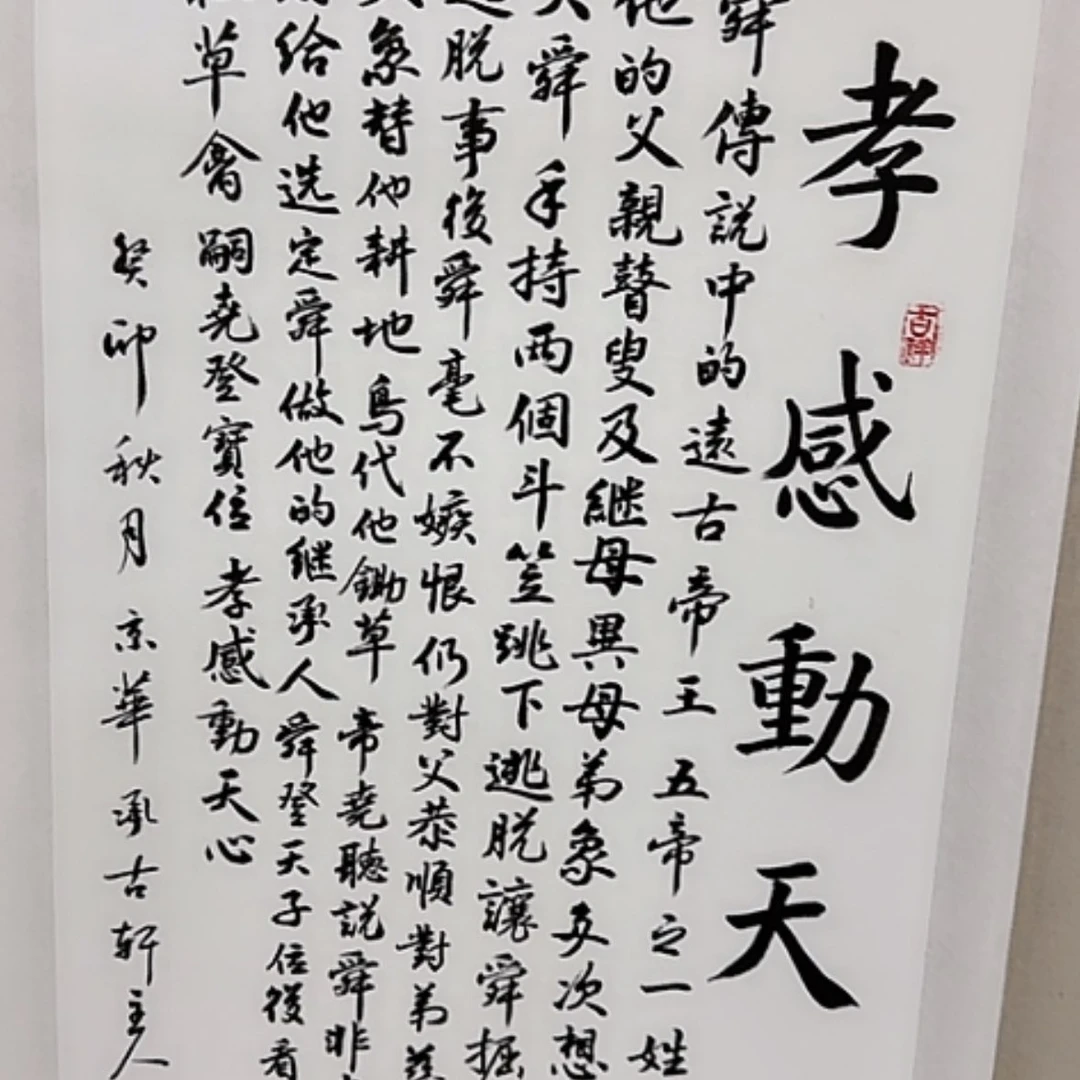 孝感動天
吉祥
舜傳説中的遠古帝王五帝之一姓
他的父親瞽叟及继母異母弟象多次想
舜手持兩個斗笠跳下逃脱讓舜掘
逃脱事後舜毫不嫉恨仍對父恭順對弟慈
象替他耕地鳥代他鋤草帝堯聽説舜非
給他选定舜做他的继承人舜登天子位後看
草禽嗣堯登寶位孝感動天心
癸卯秋月京華承古軒主人